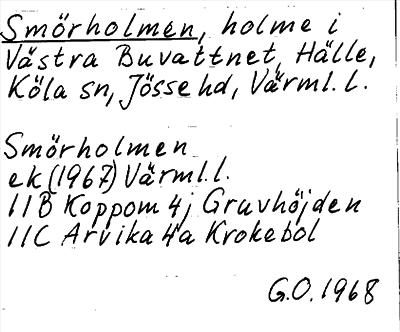 Smörholmen, holme i
Västra Buvattnet, Hälle,
Köla sn, Jösse hd, Värml. l.
Smörholmen
ek (1967) Värml. l.
11B Koppom 4j Gruvhöjden
11C Arvika 4a Krokebol
G.O. 1968